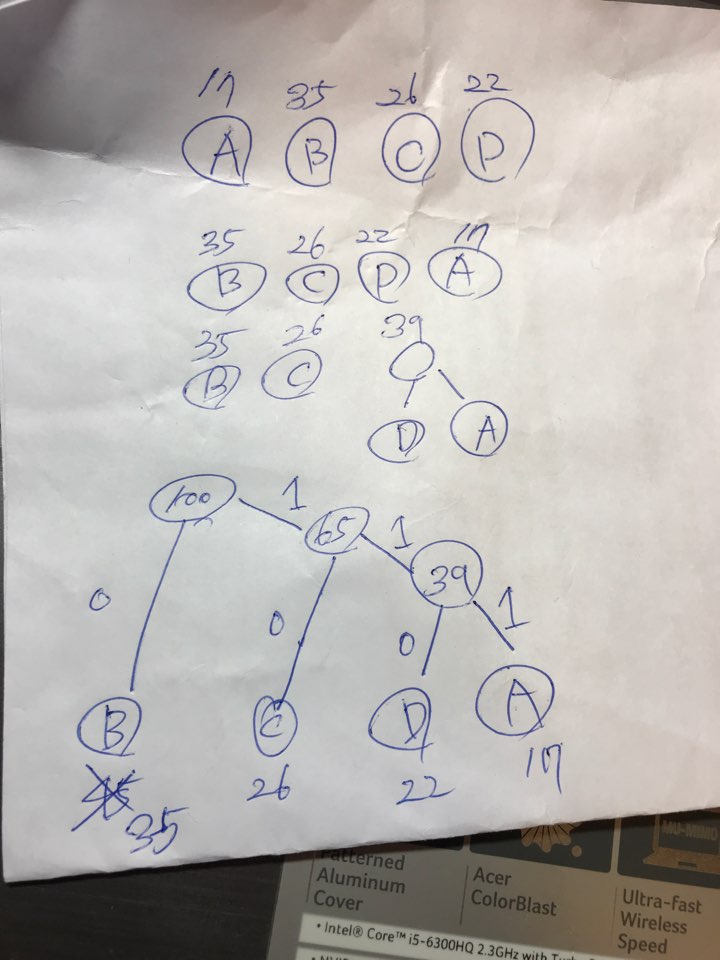 17 35 26 22
A B C D
35 26 22 17
B C D A
35 26 39
B C
D A
100 1 65 1 39
0 0 0 1
B C D A
35 26 22 17
Patterned
Aluminum
Cover
Acer
ColorBlast
Ultra-Fast
Wireless
Speed
MU-MIMO
• Intel® Core™ i5-6300HQ 2.3GHz with Turbo